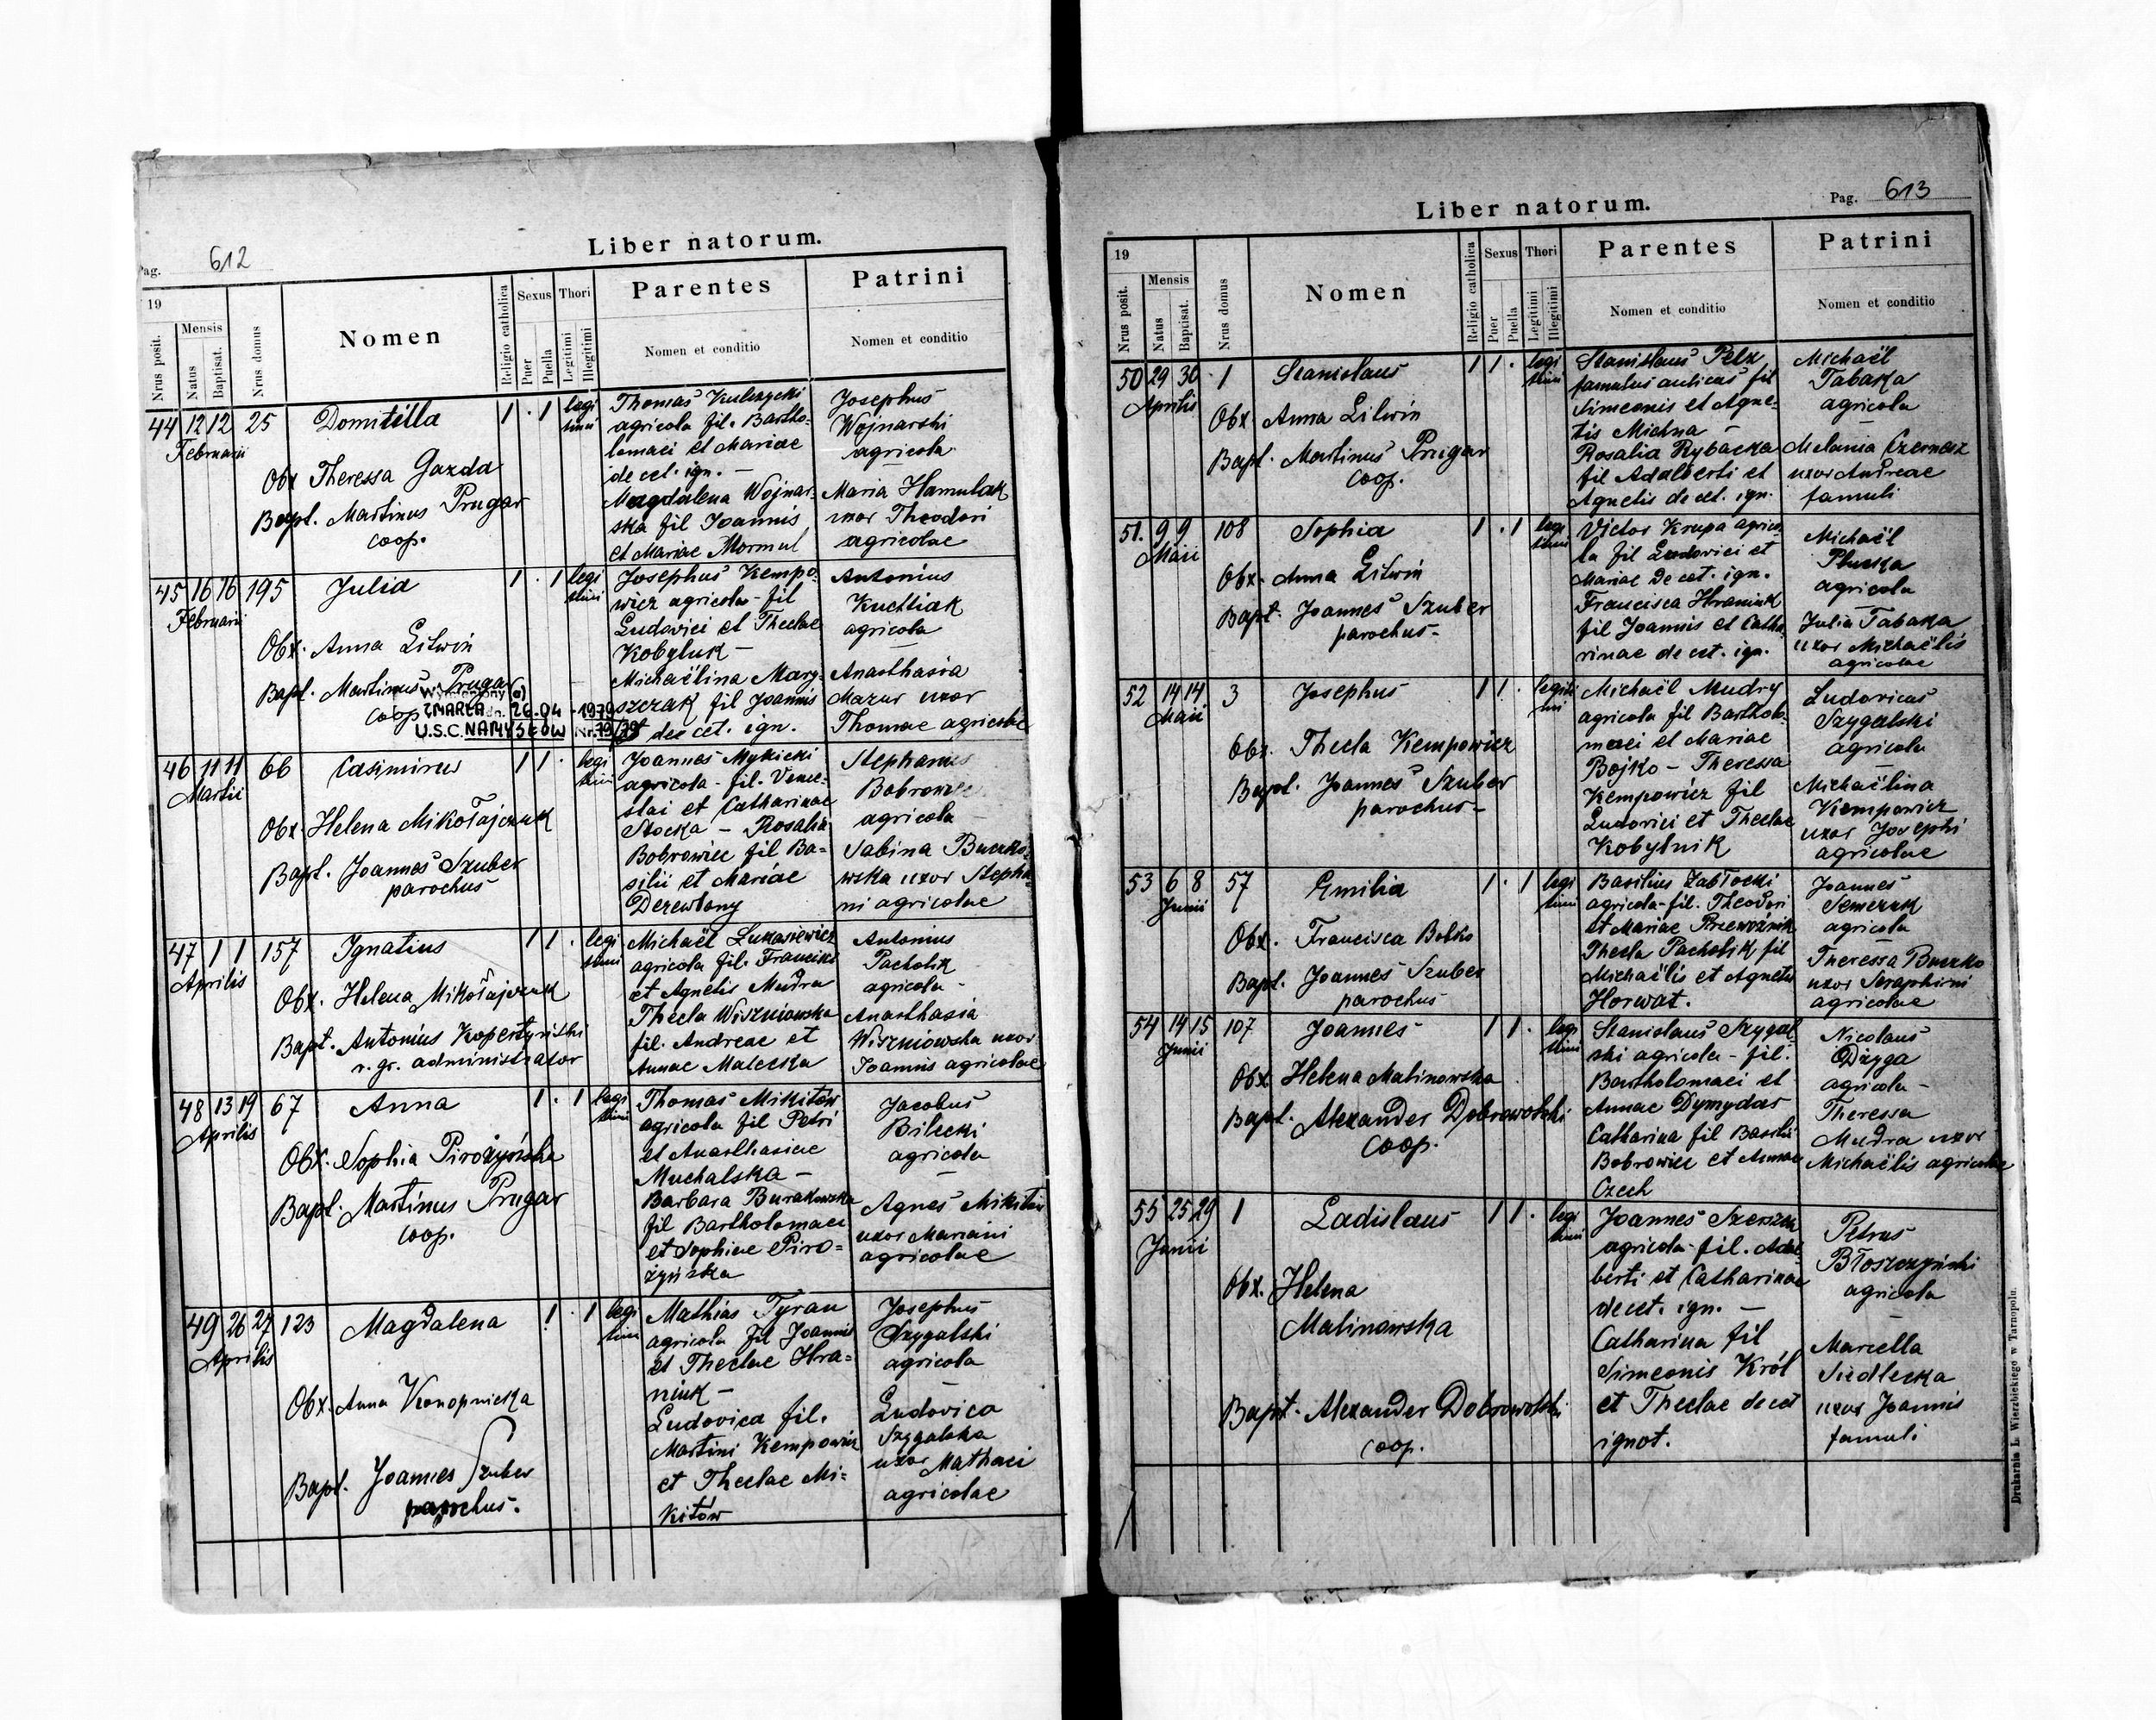 Pag. 612
Liber natorum.
19
Nrus posit.
Mensis
Natus
Baptisat.
Nrus domus
Nomen
Religio catholica
Sexus
Puer
Puella
Thori
Legitimi
Illegitimi
Parentes
Nomen et conditio
Patrini
Nomen et conditio
44 12 12 25 Domitilla 1 . 1 legi
timi
Februarii
Obx Theressa Gazda
Bapt. Martinus Prugar
coop.
Thomas Kulczycki
agricola fil. Bartho-
lomaei et Mariae
de cet. ign. —
Magdalena Wojnar-
ska fil Joannis
et Mariae Mormul
Josephus
Wojnarski
agricola
Maria Hamulak
uxor Theodori
agricolae
45 16 16 195 Julia 1 . 1 legi
timi
Februarii
Obx. Anna Litwin
Bapt. Martinus Prugar
coop.
ZMARŁA dn. 26.04 1979
U.S.C. NAMYSŁÓW Nr. 79/79
Josephus Kempo-
wicz agricola - fil
Ludovici et Theclae
Kobyluk —
Michaëlina Mary-
szczak fil Joannis
et de cet. ign.
Antonius
Kuchtiak
agricola
Anasthasia
Mazur uxor
Thomae agricolae
46 11 11 66 Casimirus 1 1 . legi
timi
Martii
Obx. Helena Mikołajczuk
Bapt. Joannes Szuber
parochus
Joannes Mykicki
agricola - fil. Vence-
slai et Catharinae
Stocka — Rosalia
Bobrowiec fil Ba-
silii et Mariae
Derewlany
Stephanus
Bobrowiec
agricola —
Sabina Buczko-
wska uxor Stepha-
ni agricolae
47 1 1 157 Ignatius 1 1 . legi
timi
Aprilis
Obx. Helena Mikołajczuk
Bapt. Antonius Kopertyński
r. gr. administrator
Michaël Lukasiewicz
agricola fil. Francisci
et Agnetis Mudra
Thecla Wiszniowska
fil. Andreae et
Annae Malecka
Antonius
Pacholik
agricola -
Anasthasia
Wiszniowska uxor
Joannis agricolae
48 13 19 67 Anna 1 . 1 legi
timi
Aprilis
Obx. Sophia Pirożyńska
Bapt. Martinus Prugar
coop.
Thomas Mikitów
agricola fil Petri
et Anasthasiae
Muchalska —
Barbara Burakowska
fil Bartholomaei
et Sophiae Piro-
żyńska
Jacobus
Bilecki
agricola
Agnes Mikitów
uxor Mariani
agricolae
49 26 27 123 Magdalena 1 . 1 legi
timi
Aprilis
Obx. Anna Konopnicka
Bapt. Joannes Szuber
parochus.
Mathias Tyran
agricola fil Joannis
et Theclae Hra-
niuk —
Ludovica fil.
Martini Kempowicz
et Theclae Mi-
kitów
Josephus
Szygalski
agricola
Ludovica
Szygalska
uxor Mathaei
agricolae
Liber natorum.
Pag. 613
19
Nrus posit.
Mensis
Natus
Baptisat.
Nrus domus
Nomen
Religio catholica
Sexus
Puer
Puella
Thori
Legitimi
Illegitimi
Parentes
Nomen et conditio
Patrini
Nomen et conditio
50 29 30 1 Stanislaus 1 1 . legi
timi
Aprilis
Obx. Anna Litwin
Bapt. Martinus Prugar
coop.
Stanislaus Pelz
famulus aulicus fil
Simeonis et Agne-
tis Michna —
Rosalia Rybacka
fil Adalberti et
Agnetis de cet. ign.
Michaël
Tabaka
agricola
Melania Czernasz
uxor Andreae
famuli
51. 9 9 108 Sophia 1 . 1 legi
timi
Maii
Obx. Anna Litwin
Bapt. Joannes Szuber
parochus -
Victor Krupa agrico-
la fil Ludovici et
Mariae de cet. ign.
Francisca Hraniuk
fil Joannis et Catha-
rinae de cet. ign.
Michaël
Pluska
agricola
Julia Tabaka
uxor Michaëlis
agricolae
52 14 14 3 Josephus 1 1 . legiti
mi
Maii
Obx. Thecla Kempowicz
Bapt. Joannes Szuber
parochus -
Michaël Mudry
agricola fil Bartholo-
maei et Mariae
Bojko — Theressa
Kempowicz fil
Ludovici et Theclae
Kobylnik
Ludovicus
Szygalski
agricola
Michaëlina
Kempowicz
uxor Josephi
agricolae
53 6 8 57 Emilia 1 . 1 legi
timi
Junii
Obx. Francisca Bolko
Bapt. Joannes Szuber
parochus
Basilius Zabłocki
agricola - fil. Theodori
et Mariae Przewoźnik
Thecla Pacholik fil
Michaëlis et Agnetis
Horwat.
Joannes
Semczuk
agricola
Theressa Buczko
uxor Seraphini
agricolae
54 14 15 107 Joannes 1 1 . legi
timi
Junii
Obx. Helena Malinowska
Bapt. Alexander Dobrowolski
coop.
Stanislaus Szygal-
ski agricola - fil.
Bartholomaei et
Annae Dymydas
Catharina fil Basilii
Bobrowiec et Annae
Czech
Nicolaus
Dżyga
agricola -
Theressa
Mudra uxor
Michaëlis agricolae
55 25 29 1 Ladislaus 1 1 . legi
timi
Junii
Obx. Helena
Malinowska
Bapt. Alexander Dobrowolski
coop.
Joannes
agricola - fil. Adal-
berti et Catharinae
de cet. ign. —
Catharina fil
Simeonis Król
et Theclae de cet
ignot.
Petrus
Błoszczyński
agricola
Marcella
Siedlecka
uxor Joannis
famuli
Drukarnia L. Wierzbickiego w Tarnopolu.